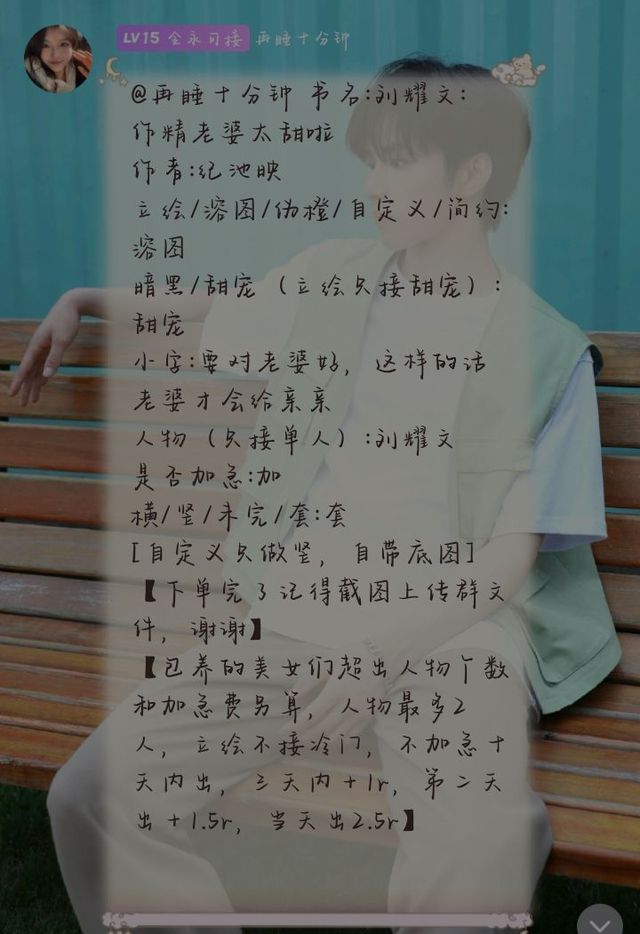 LV15 全永可接 再睡十分钟
@再睡十分钟 书名:刘耀文:
作精老婆太甜啦
作者:纪池映
立绘/溶图/伪橙/自定义/简约:
溶图
暗黑/甜宠（立绘只接甜宠）:
甜宠
小字:要对老婆好，这样的话
老婆才会给亲亲
人物（只接单人）:刘耀文
是否加急:加
横/竖/未完/套:套
[自定义只做竖，自带底图]
【下单完了记得截图上传群文
件，谢谢】
【包养的美女们超出人物个数
和加急费另算，人物最多2
人，立绘不接冷门，不加急十
天内出，三天内+1r，第二天
出+1.5r，当天出2.5r】